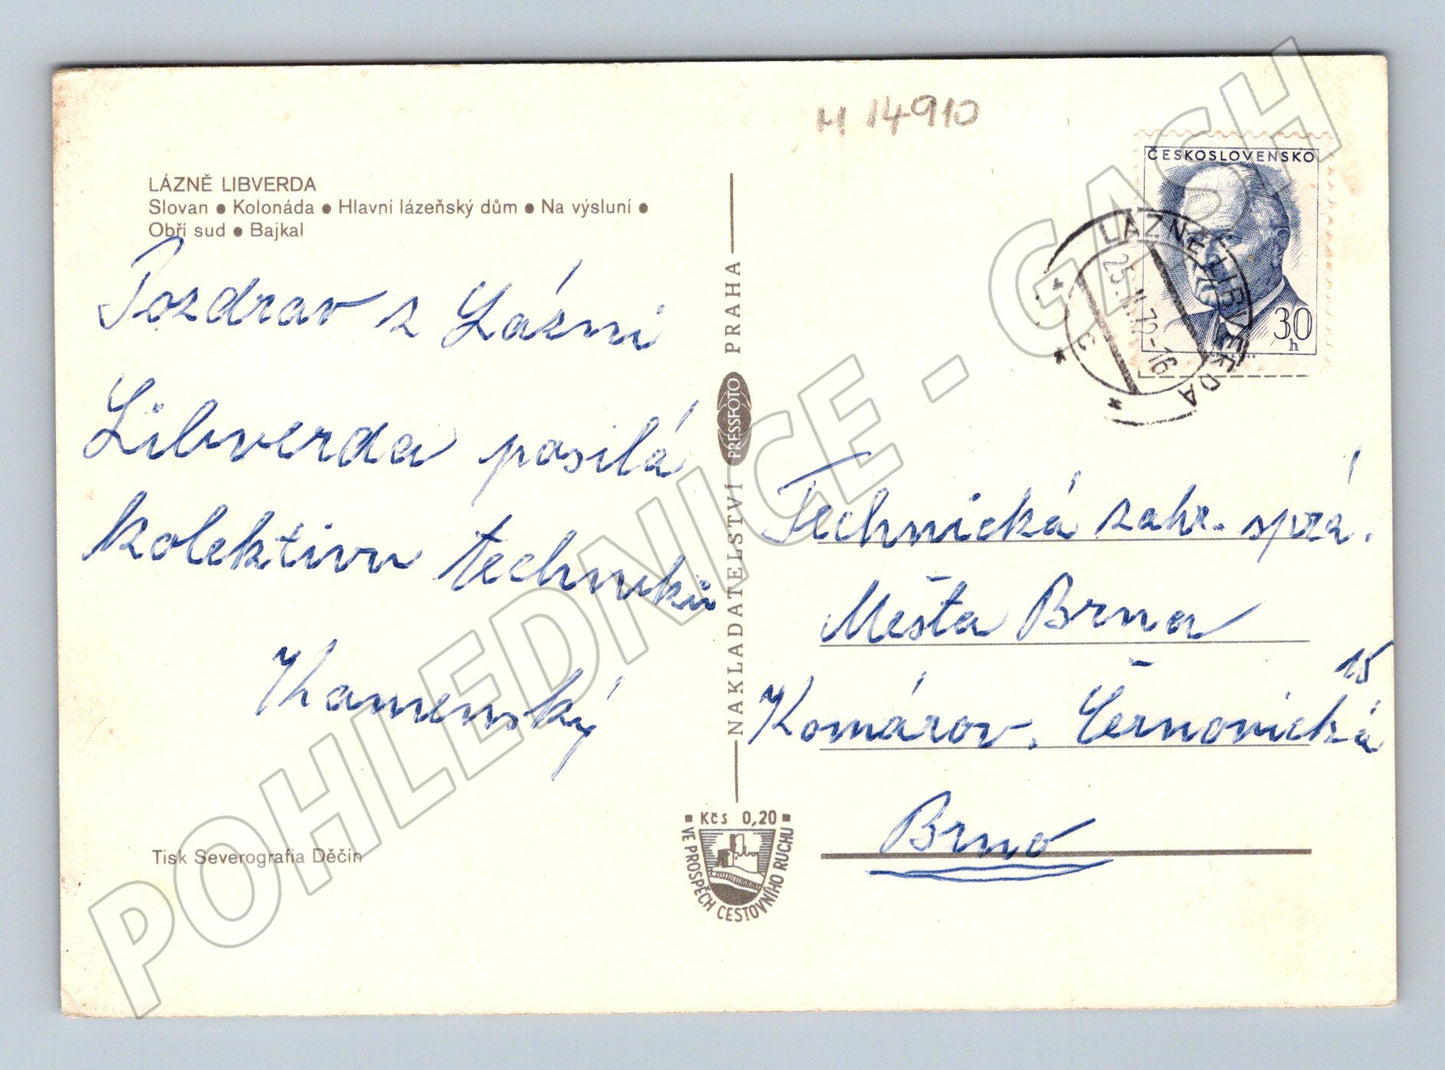 M 14910
LÁZNĚ LIBVERDA
Slovan ● Kolonáda ● Hlavní lázeňský dům ● Na výsluní ●
Obří sud ● Bajkal
Pozdrav z Lázní
Libverda posílá
kolektivu techniků
Kamenský
Tisk Severografia Děčín
NAKLADATELSTVÍ PRESSFOTO PRAHA
Kčs 0,20
VE PROSPĚCH CESTOVNÍHO RUCHU
ČESKOSLOVENSKO
30
h
LÁZNĚ LIBVERDA
72-16
c
Technická zahr. sprá.
Města Brna
15
Komárov. Černovická
Brno
POHLEDNICE - GASH